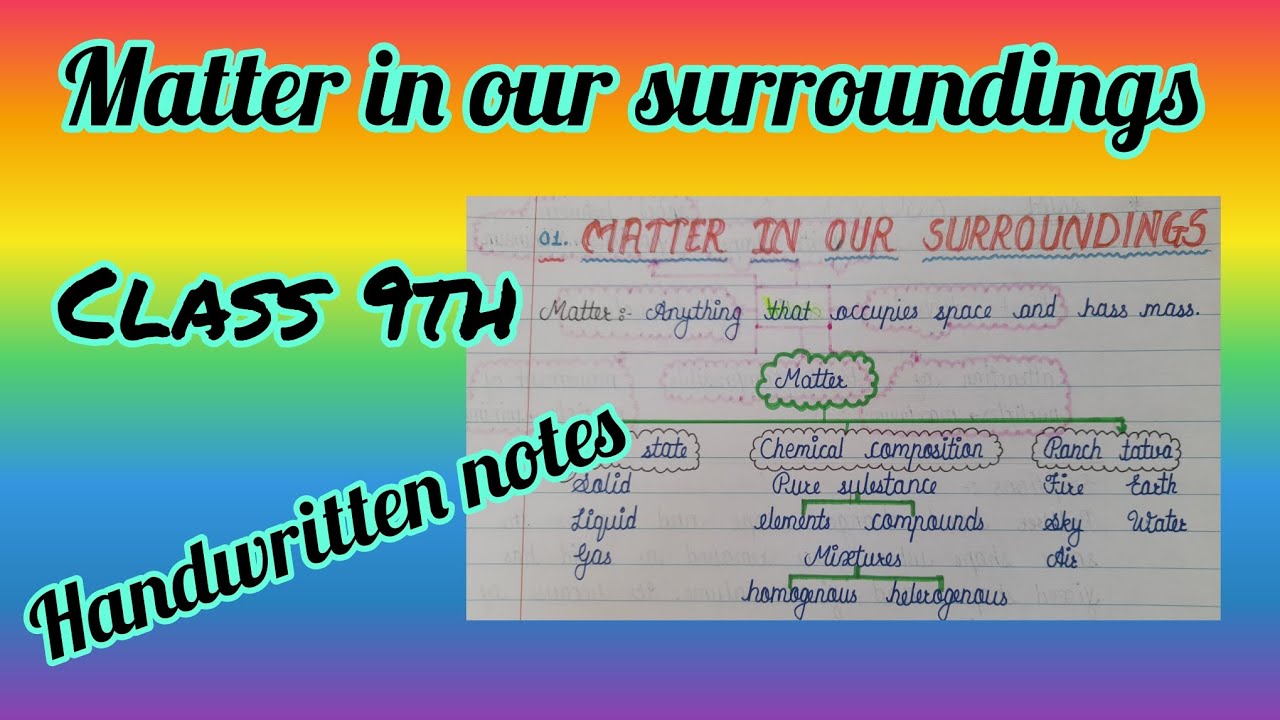 Matter in our surroundings
01. MATTER IN OUR SURROUNDINGS
Class 9th
Matter :- Anything that occupies space and hass mass.
Matter
state Chemical composition Panch tatva
Handwritten notes
Solid Pure substance Fire Earth
Liquid elements compounds Sky Water
Gas Mixtures Air
homogenous heterogenous